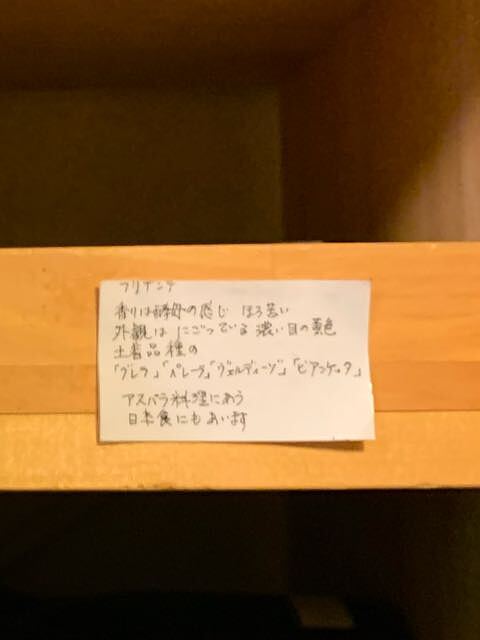 フリザンテ
香りは酵母の感じ ほろ苦い
外観は にごっている 濃い目の黄色
土着品種の
「グレラ」「ペレーラ」「ヴェルディーゾ」「ビアンケッタ」
アスパラ料理にあう
日本食にもあいます